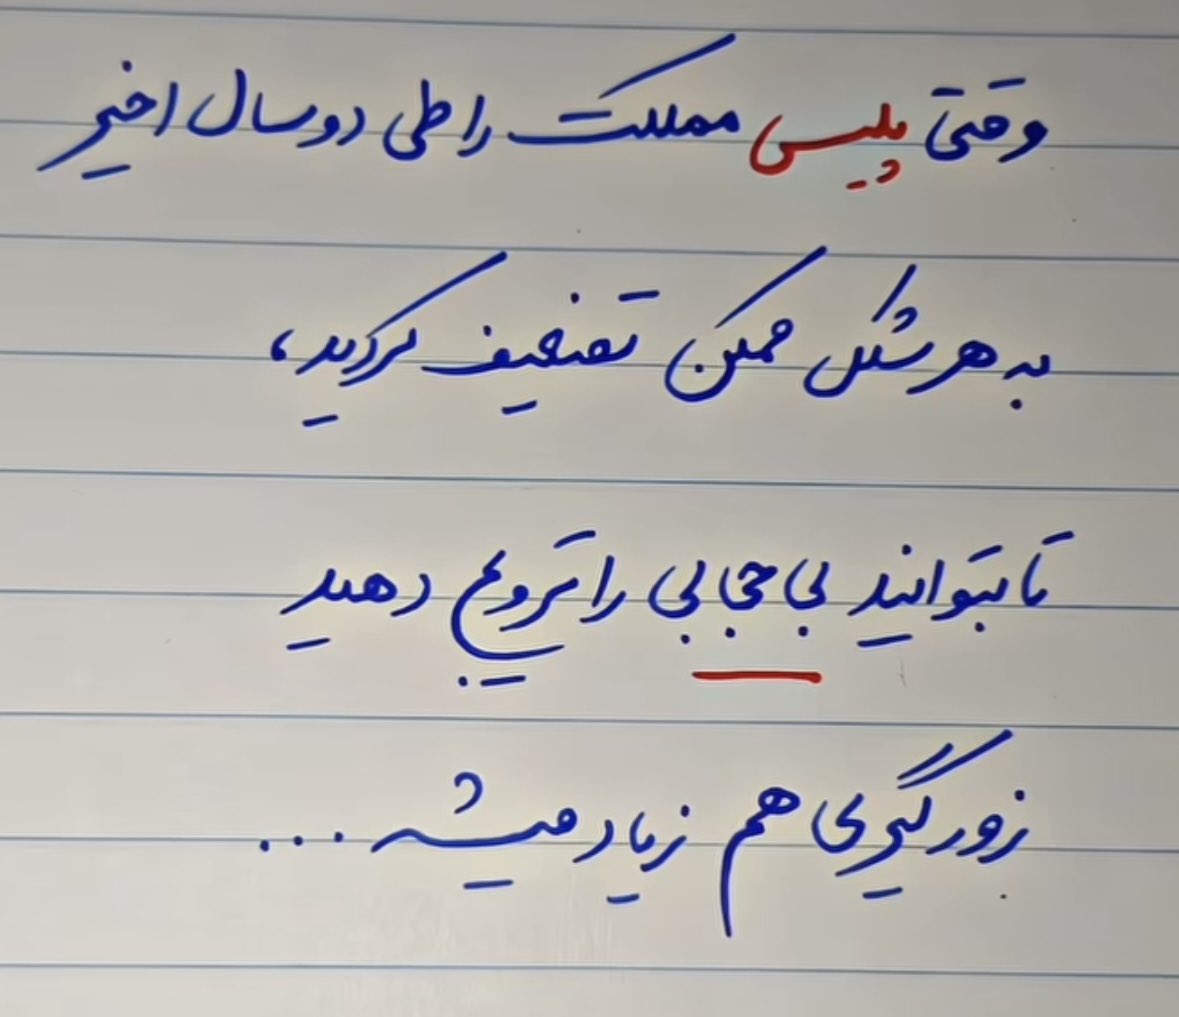 وقتی پلیس مملکت را طی دو سال اخیر
به هر شکل ممکن تضعیف کردید،
تا بتوانید بی حجابی را ترویج دهید
زورگیری هم زیاد میشه ...